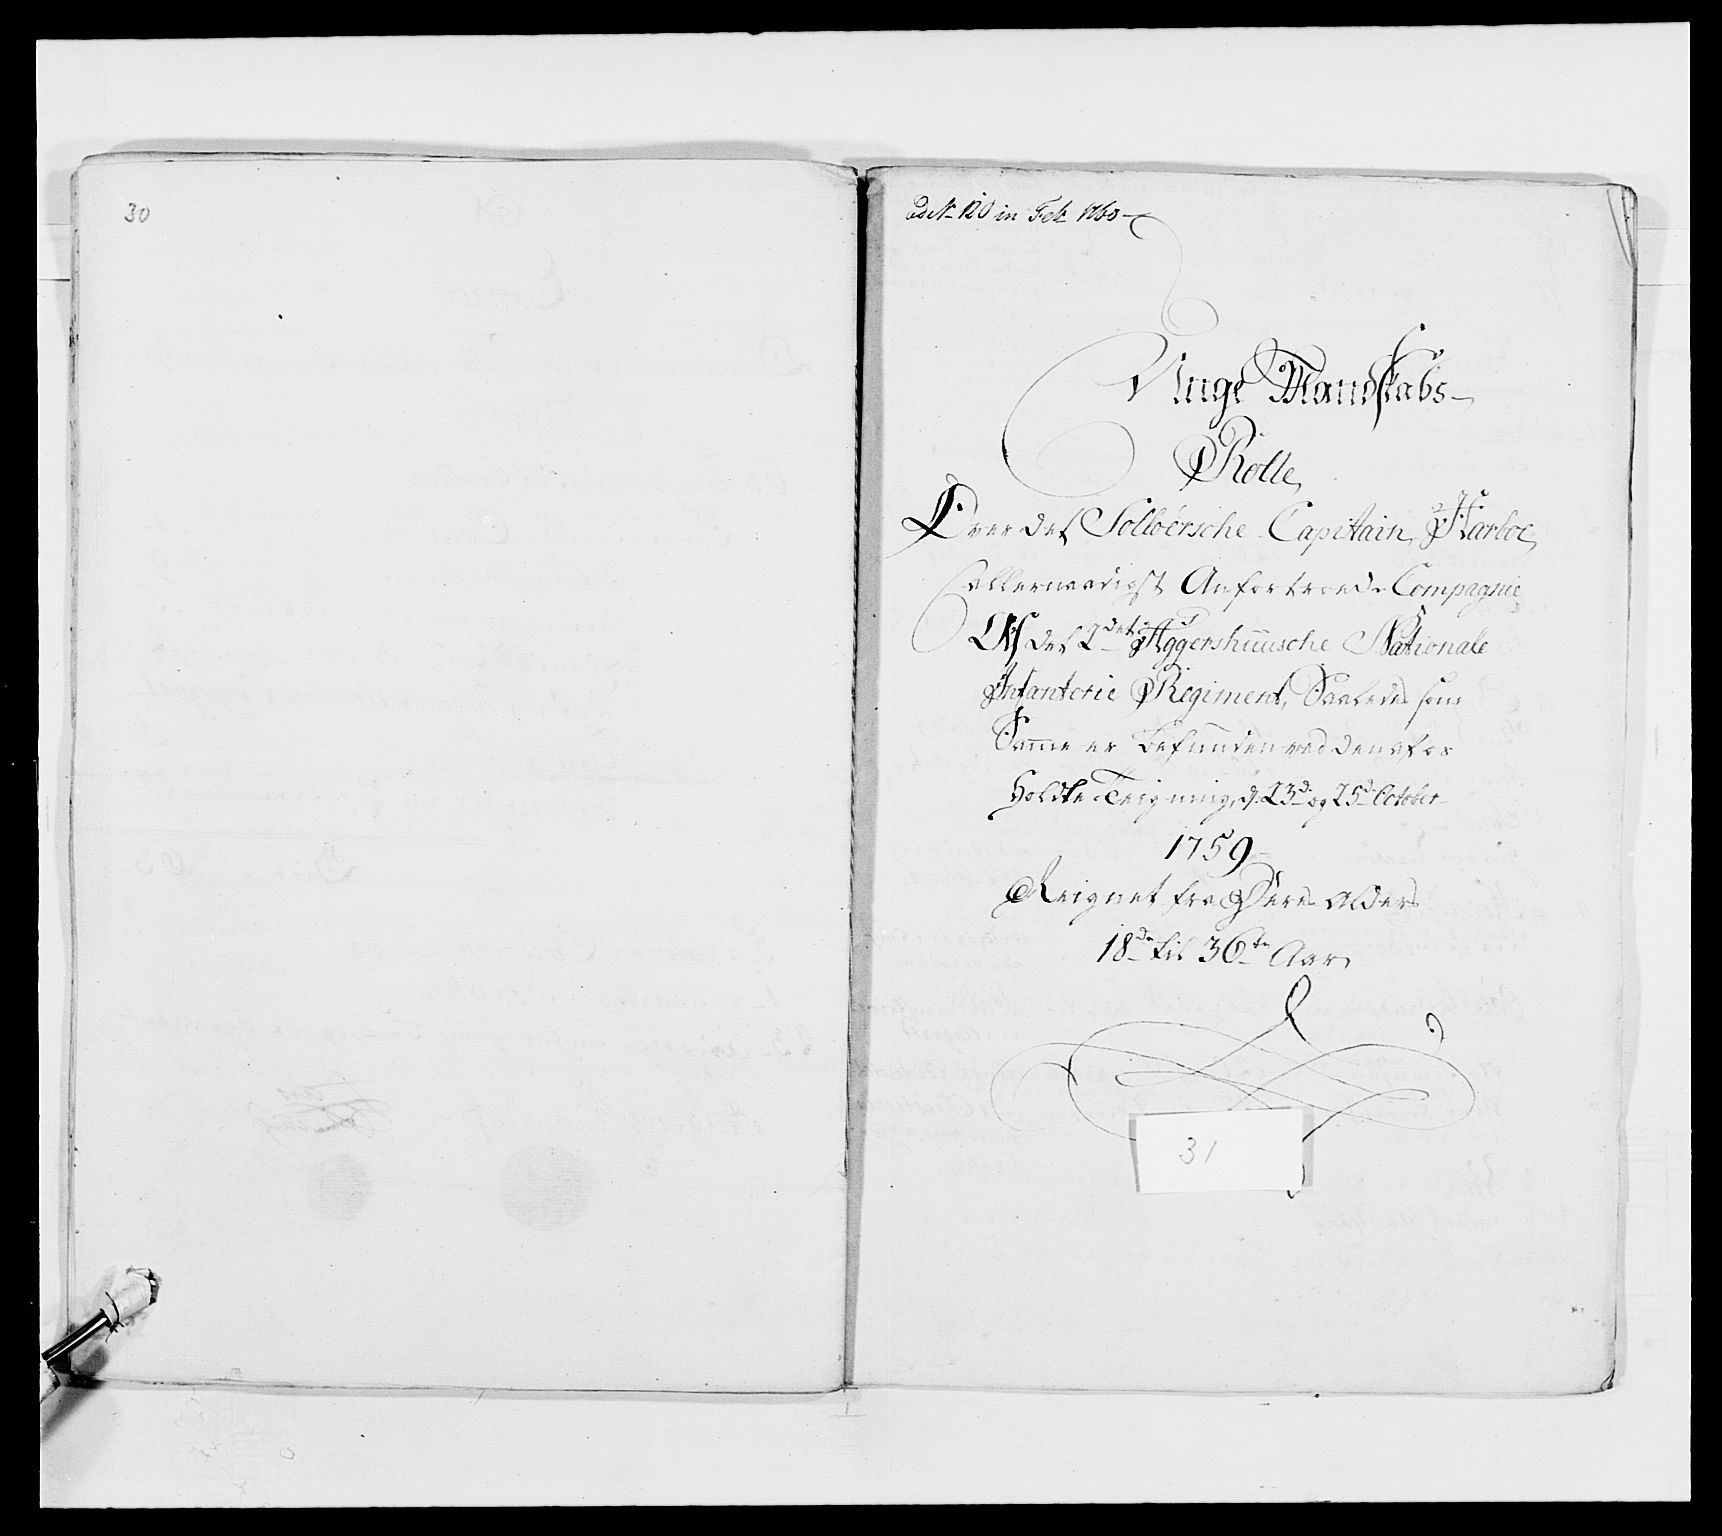 30
ad N 120 in Feb 1760
Unge Mandskabs
Rolle,
Over det Solloersche Capitain Harboe,
allernaadigst Anfortroede Compagnie
Af det 2det Aggershuusche Nationale
Infanterie Regiment, Saaledes som
Samme er befunden ved den
Holdte Teigning, d. 23d og 25d October
1759
Reignet fra Deres Alders
18de til 36te Aar
31